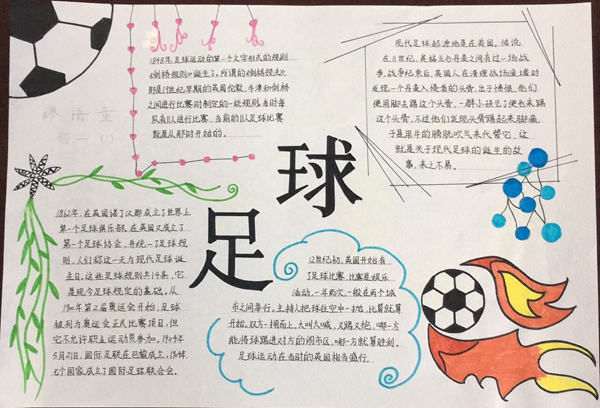 1848年,足球运动的第一个文字形式的规则
《剑桥规则》诞生了,所谓的《剑桥规则》,
即是19世纪早期的英国伦敦,牛津和剑桥
之间进行比赛时制定的一些规则,当时每
队有11人进行比赛,当前的11人足球比赛
就是从那时开始的。
现代足球起源地是在英国,传说
在11世纪,英格兰与丹麦之间有过一场战
争,战争结束后,英国人在清理战场废墟时
发现一个丹麦入侵者的头骨,出于愤恨,他们
便用脚去踢这个头骨,一群小孩见了便也来踢
这个头骨,不过他们发现头骨踢起来脚痛,
于是用牛的膀胱吹气来代替它,这
就是关于现代足球的诞生的故
事,来之不易。
足球
1862年,在英国诺丁汉郡成立了世界上
第一个足球俱乐部,在英国又成立了
第一个足球协会,并统一了足球规
则,人们称这一天为现代足球诞
生日,这些足球规则共14条,它
是现今足球规定的基础。从
1900年第2届奥运会开始,足球
被列为奥运会正式比赛项目,但
它不允许职业运动员参加。1904年
5月21日,国际足联在巴黎成立,
七个国家成立了国际足球联合会。
12世纪初,英国开始有
了足球比赛,比赛是娱乐
活动,一年两次,一般在两个城
市之间举行,主持人把球往空中一抛,比算就算
开始,双方一拥而上,大叫大喊,又踢又抱,哪一方
能将球踢进对方的闹市区,哪一方就算胜利。
足球运动在当时的英国相当盛行。